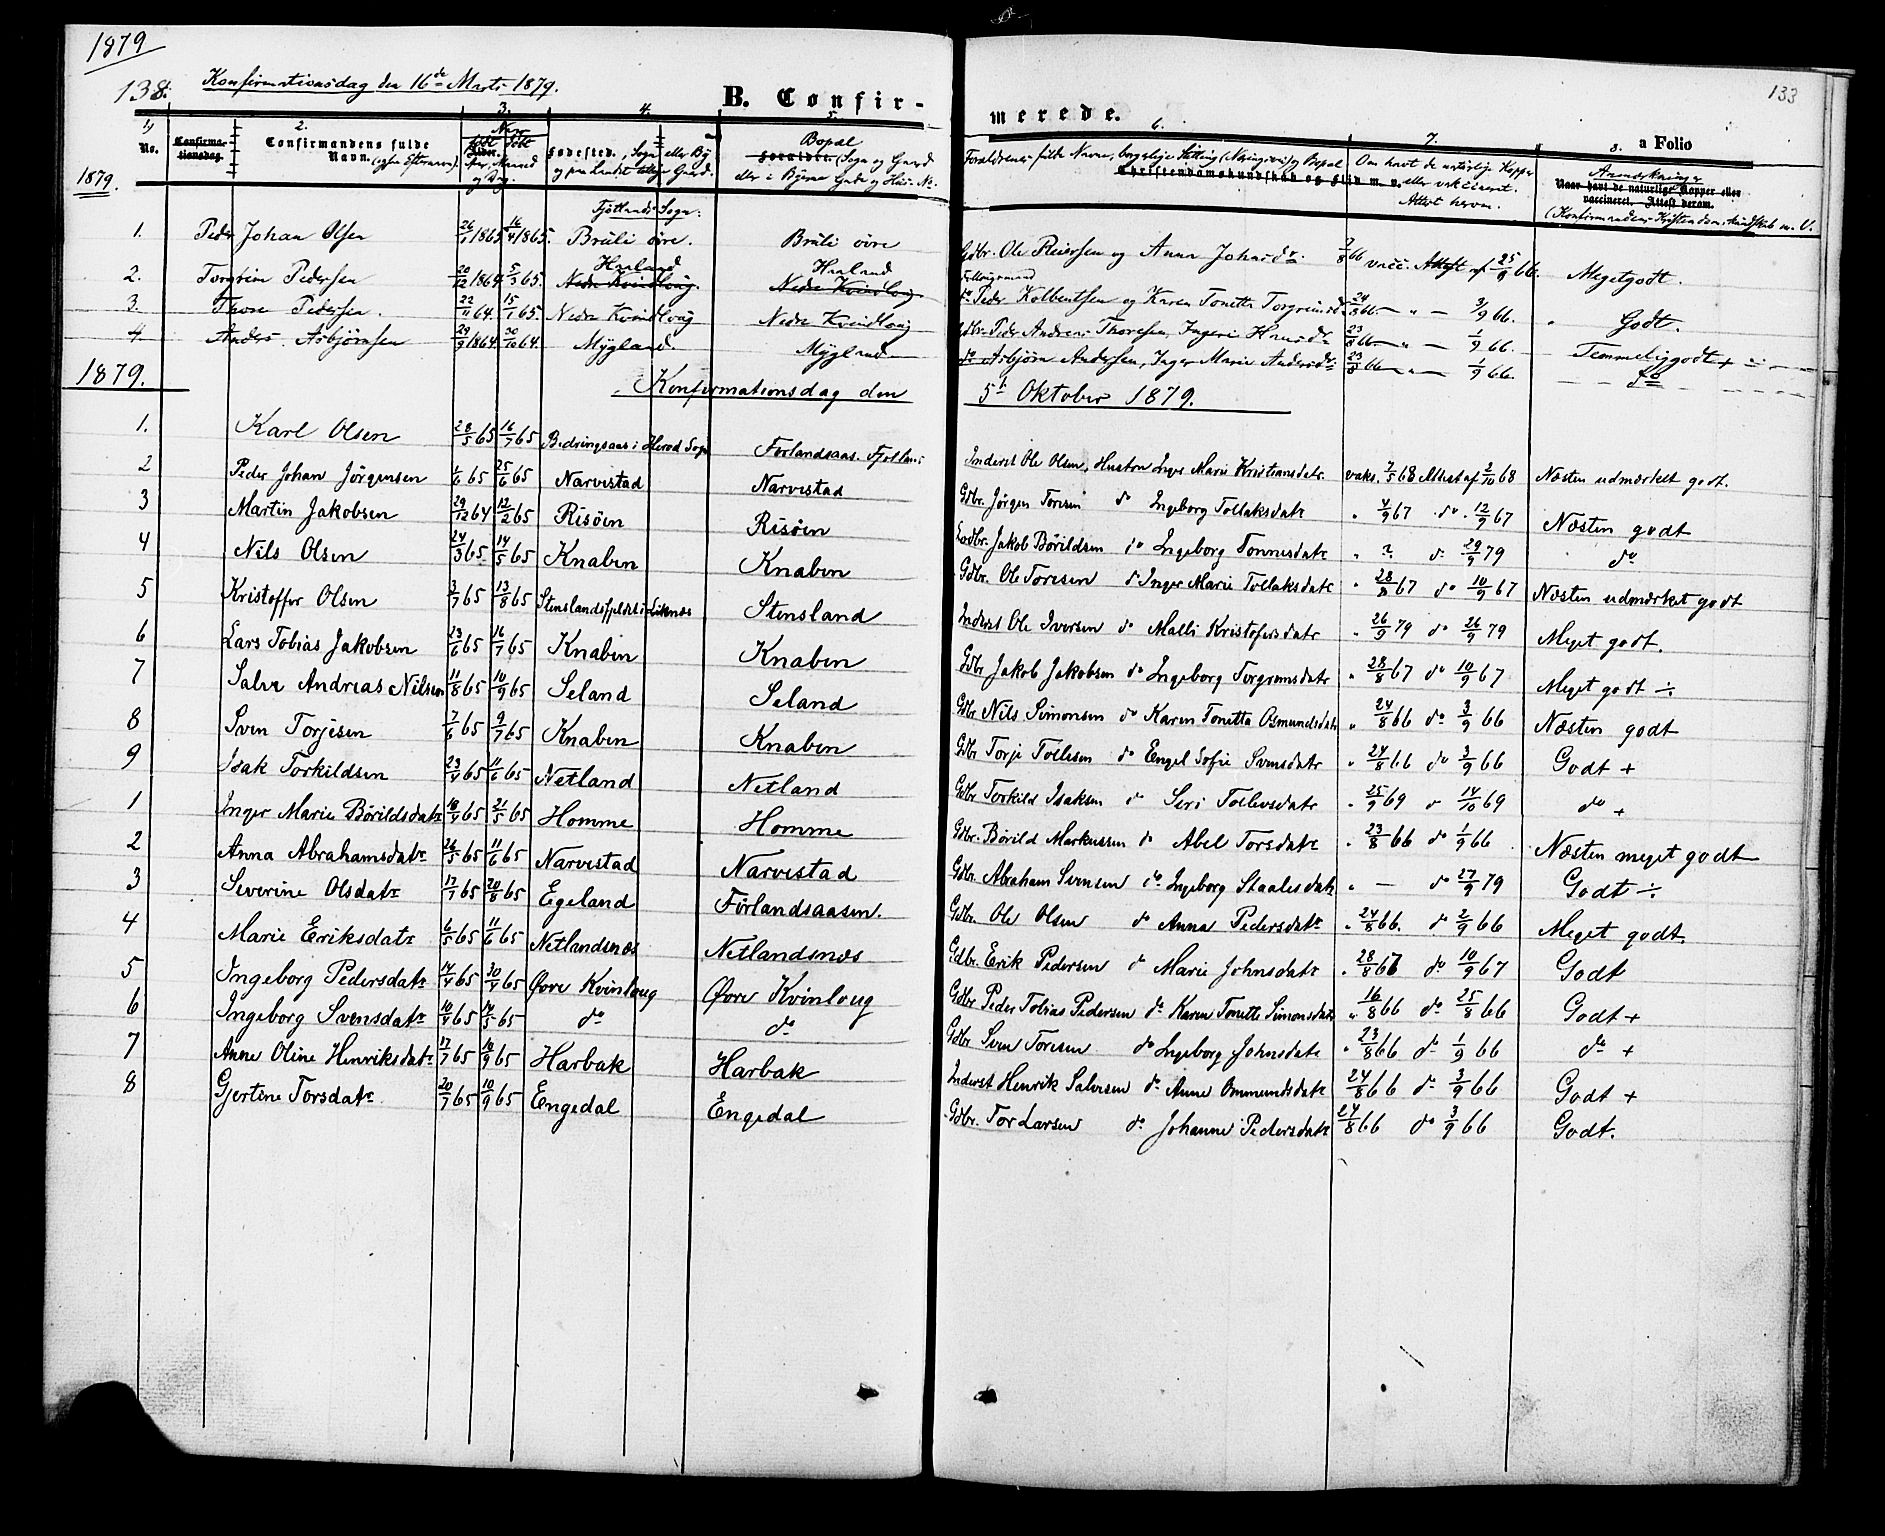 1879
138. Konfirmationsdag den 16de Marts 1879.
B. Confir-
merede.
133
1) No.
Confirmationsdag.
2. Confirmandens fulde Navn.
3. Naar født Døbt
4. Fødested, Sogn eller By
5. Bopæl (Sogn og Gaard
6. Forældrenes fulde Navne, borgerlige Stilling (Næringsvei) og Bopæl
Christendomskundskab og Flid m. v.
7. Om havt de naturlige Kopper eller vakcineret. Attest herom.
8. Anmærkninger
Naar havt de naturlige Kopper eller vaccineret. Attest derom.
(Konfirmandens Kristendomskundskab m. V.
a Folio
1879.
Fjotlands Sogn:
1. Peder Johan Olsen 26/1 1865. 16/4 1865. Brüli øvre. Brüli øvre Gdbr. Ole Reiersen og Anna Johnsdr. 7/8 66 vacc. Attest af 25/9 66. Megetgodt.
2. Torgrim Pedersen 20/12 1864 5/3 65. Haaland Nedre Kvindloug. Haaland Nedre Kvindlog do Peder Kolbentsen og Karen Tonette Torgrimsd. 24/8 66 " — 3/9 66. " Godt.
3. Thore Pedersen. 22/11 64. 15/1 65. Nedre Kvindloug Nedre Kvindlog Gdbr. Peder Andreas Thoresen, Ingeri Hansdr 23/8 66 — " — 1/9 66. Temmeliggodt +
4. Anders Asbjørnsen 29/9 1864 30/10 64. Mygland. Mygland do Asbjørn Andersen, Inger Marie Andersdr. 23/8 66 — " — 1/9 66. do
1879. Konfirmationsdag den 5te Oktober 1879.
1. Karl Olsen 28/5 65 16/7 65 Bedringsaas i Herad Sogn Førlandsaas. Fjotland Inderst Ole Olsen, Hustru Inger Marie Kristiansdatr. vaks. 7/5 68 Attest af 2/10 68 Næsten udmærket godt.
2 Peder Johan Jörgensen 1/6 65 25/6 65 Narvestad Narvestad Gdbr. Jörgen Toresen do Ingeborg Tollaksdatr " 4/9 67 do. 12/9 67 Næsten godt
3 Martin Jakobsen 29/12 64 12/2 65 Risöen Risöen Gdbr. Jakob Börildsen do Ingeborg Tonnesdatr " ? do 29/9 79 do
4 Nils Olsen 24/3 65 14/5 65 Knaben Knaben Gdbr. Ole Toresen do Inger Marie Tollaksdatr " 28/8 67 do 10/9 67 Næsten udmærket godt
5 Kristoffer Olsen 3/7 65 13/8 65 Stensland Inderst Ole Iversen do Malli Kristofersdatr " 26/9 79 do 26/9 79 Meget godt.
6 Lars Tobias Jakobsen 23/6 65 16/7 65 Knaben Knaben Gdbr Jakob Jakobsen do Ingeborg Torgrimsdatr " 28/8 67 do 10/9 67. Meget godt ÷
7 Salve Andreas Nilsen 11/8 65 10/9 65 Seland Seland Gdbr Nils Simonsen do Karen Tonetta Osmundsdatr " 24/8 66 do 3/9 66 Næsten godt
8 Sven Torjesen 7/6 65 9/7 65 Knaben Knaben Gdbr Torje Tollesen do Engel Sofie Svensdatr " 24/8 66 do 3/9 66 Godt +
9 Isak Torkildsen 23/4 65 11/6 65 Netland Netland Gdbr Torkild Isaksen do Seri Tollevsdatr " 25/9 69 do 14/10 69 do +
1 Inger Marie Börildsdatr 18/4 65 21/5 65 Homme Homme Gdbr. Börild Markussen do Abel Torsdatr " 23/8 66 do 1/9 66 Næsten meget godt
2 Anna Abrahamsdatr 26/5 65 11/6 65 Narvestad Narvestad Gdbr. Abraham Svensen do Ingeborg Staalesdatr " — do 27/9 79 Godt ÷
3 Severine Olsdatr 17/7 65 20/8 65 Egeland Förlandsaasen. Gdbr. Ole Olsen do Anna Pedersdatr " 24/8 66. do 2/9 66 Meget godt.
4 Marie Eriksdatr 6/5 65 11/6 65 Netlandsnæs Netlandsnæs Gdbr. Erik Pedersen do Marie Johnsdatr " 28/8 67 do 10/9 67 Godt
5 Ingeborg Pedersdatr 14/4 65 30/4 65 Øvre Kvinloug Øvre Kvinloug Gdbr Peder Tobias Pedersen do Karen Tonette Simonsdatr " 16/8 66 do 25/8 66 Godt +
6 Ingeborg Svensdatr 10/4 65 14/5 65 do do Gdbr Sven Toresen do Ingeborg Johnsdatr " 23/8 66 do 1/9 66 do +
7 Anne Oline Henriksdatr 17/7 65 10/9 65 Harbak Harbak Inderst Henrik Salvesen do Anne Ommundsdatr 24/8 66 do 3/9 66 Godt +
8 Gjertine Torsdatr 20/7 65 10/9 65 Engedal Engedal Gdbr. Tor Larsen do Johanne Pedersdatr 24/8 66 do 3/9 66 Godt.